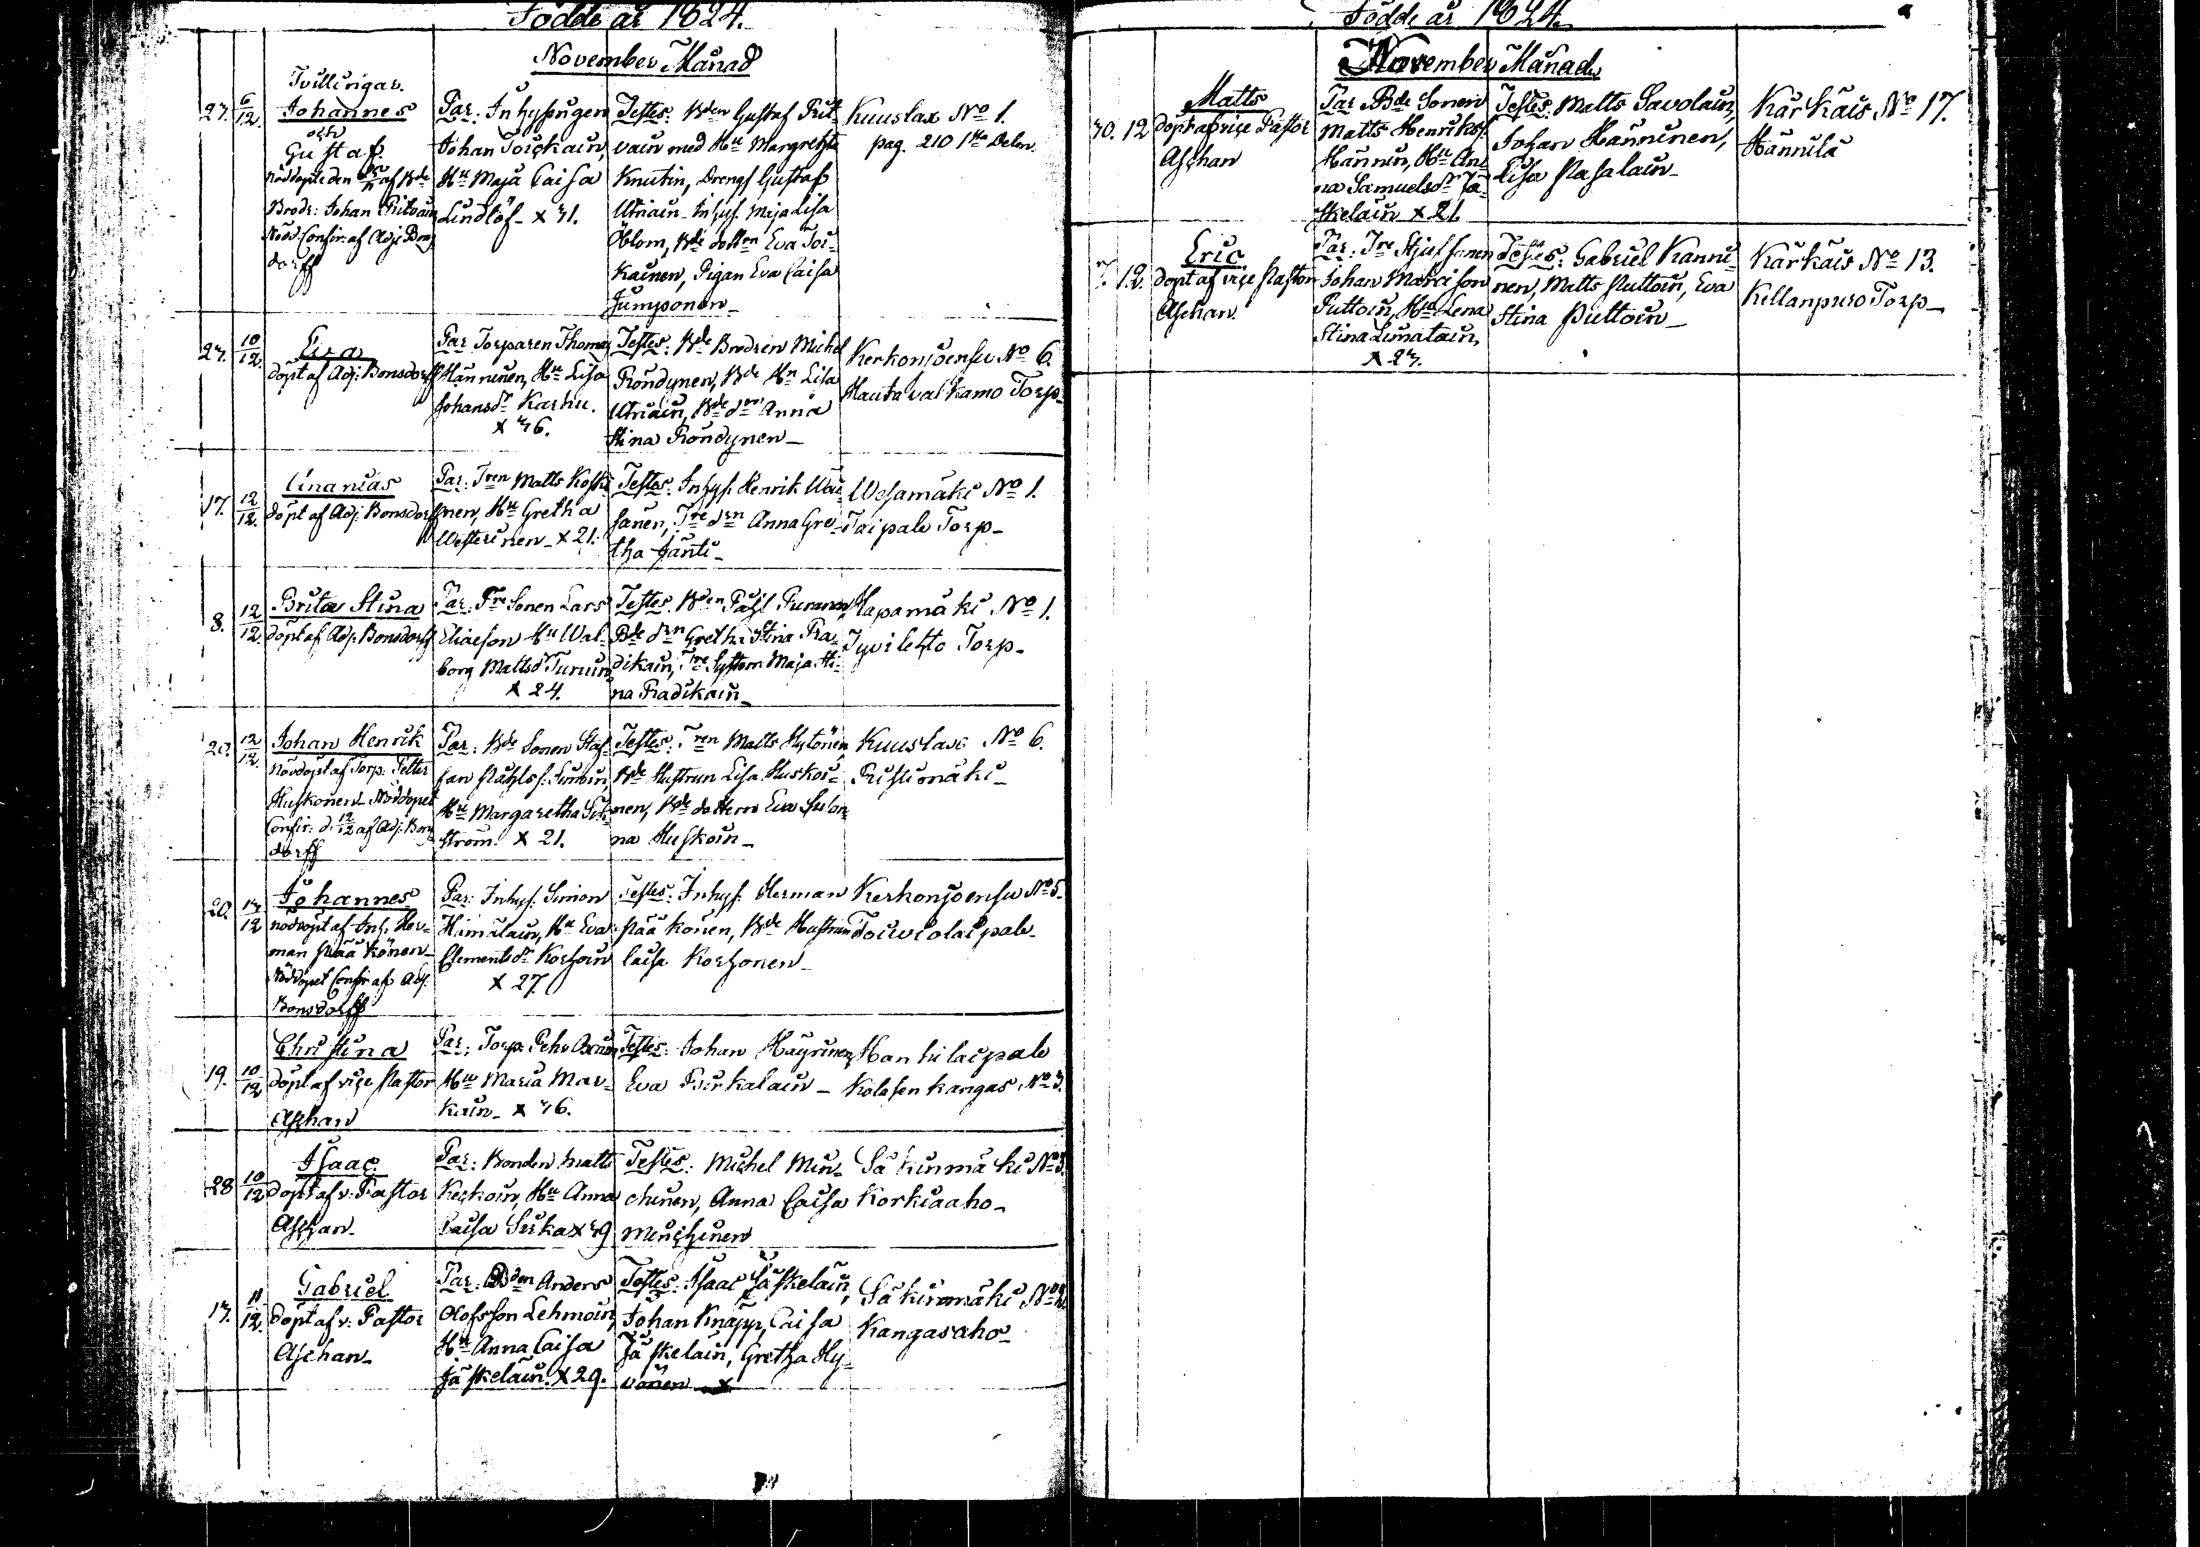 Födde år 1824.
November Månad
Tvillingar.
27. 6/12. Johannes
och
Gustaf.
Par: Inhysingen
Johan Toickain,
Hu Maja Caisa
Lindlöf - x 31.
Testes: Bden Gustaf Rit-
vain med Hu Margretha
Knutin, Dreng Gustaf
Utriain - Inhys. Maja Lisa
Öblom, Bde dottren Eva Toi-
kainen, Pigan Eva Caisa
Jumponen -
Kuuslax No 1.
pag. 210 1sta Delen.
Brodr: Johan Ritvain
Nöd. Confir: af Adj: Bons
dorff
27. 10/12. Eva
döpt af Adj: Bonsdorff
Par: Torparen Thomas
Hänninen, Hu Lisa
Johansdr Karhu.
x 36.
Testes: Bde Brodren Michel
Röndynen, Bde Hu Lisa
Utriain, Bde drn Anna
Stina Röndynen -
Kerkonjoensu No 6.
Hautavalkamo Torp -
17. 12/12. Ananias
döpt af Adj: Bonsdorff
Par: Tren Matts Koski
nen, Hu Gretha
Westerinen - x 21.
Testes: Inhys. Henrik Wäi-
sänen, Tre drn Anna Gre-
tha Jänti -
Wesamäki No 1.
Taipale Torp -
8. 12/12. Brita Stina
döpt af Adj: Bonsdorff
Par: Tre Sonen Lars
Eliaeson Hu Wal-
borg Mattsdr Turuin
x 24.
Testes: Bden Påhl Puranen,
Bde drn Gretha Stina Ra-
dikain, Tre Systern Maja Sti-
na Radikain -
Hapamäki No 1.
Jyvilehto Torp -
20. 12/12. Johan Henrik
nöddöpt af Torp: Petter
Huskonen - Nöddopet
Confir: d. 12/12 af Adj: Bons
dorff
Par: Bde Sonen Staf-
fan Påhlss.
Hu Margaretha
ström. x 21.
Testes: Tren Matts Hytönen,
Bde Hustrun Lisa Huskoi-
nen, Bde dottern Eva Susan-
na Huskoin -
Kuuslax No 6.
Ristimäki -
20. 13/12 Johannes
nöddöpt af Inh. Her-
man Pääkönen -
Nöddopet Confir af Adj.
Bonsdorff
Par: Inhys. Simon
Himälain, Hu Eva
Clementsdr Korhoin
x 27.
Testes: Inhys. Herman
Pääkönen, Bde Hustrun
Caisa Korhonen -
Kerkonjoensu No 5.
Toiviolaipale -
19. 10/12 Christina
döpt af vice Pastor
Aschan
Par: Torp: Pehr
Hu Maria Mar-
kain - x 36.
Testes: Johan Häyrinen,
Eva Pirkalain -
Hankilaipale
Kolasenkangas No 3.
28 10/12 Isaac
döpt af v: Pastor
Aschan -
Par: Bonden Matts
Keckoin, Hu Anna
Caisa Sirka x 39
Testes: Michel Min-
chinen, Anna Caisa
Minchinen
Säkinmäki No 3.
Korkiaaho -
13. 11/12. Gabriel
döpt af v: Pastor
Aschan -
Par: Bden Anders
Olofsson Lehmoin,
Hu Anna Caisa
Jäskeläin. x 29.
Testes: Isaac Jäskeläin,
Johan Knapp, Caisa
Jäskelain, Gretha Hy-
vönen
Säkinmäki No
Kangasaho -
Födde år 1824.
November Månad
30. 12 Matts
döpt af vice Pastor
Aschan
Par Bde Sonen
Matts Henrikss.
Hännin, Hu An-
na Samuelsdr Jä-
skeläin x 21.
Testes: Matts Savolain,
Johan Hänninen,
Lisa Pasalain -
Kärkäis No 17.
Hännilä
3. 12. Eric
döpt af vice Pastor
Aschan.
Par: Tre Stjuf sonen
Johan Mårtsson
Puttoin, Hu Lena
Stina Limatain,
x 23.
Testes: Gabriel Kanni-
nen, Matts Puttoin, Eva
Stina Puttoin -
Kärkäis No 13.
Kellanpuro Torp -